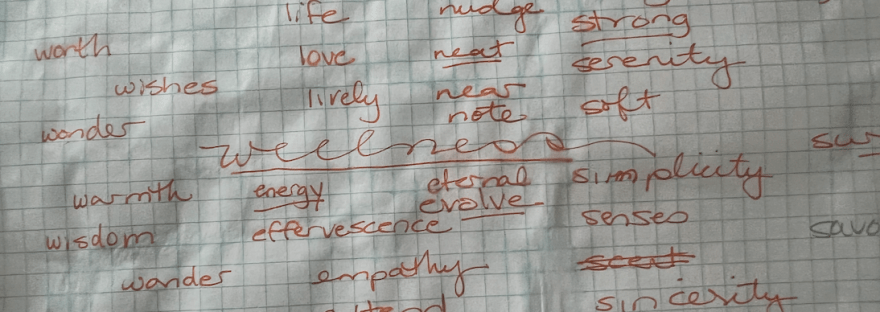 life nudge strong
worth love neat serenity
wishes lively near soft
wonder note
wellness
warmth energy eternal simplicity
wisdom effervescence evolve senses
wander empathy scent
sincerity